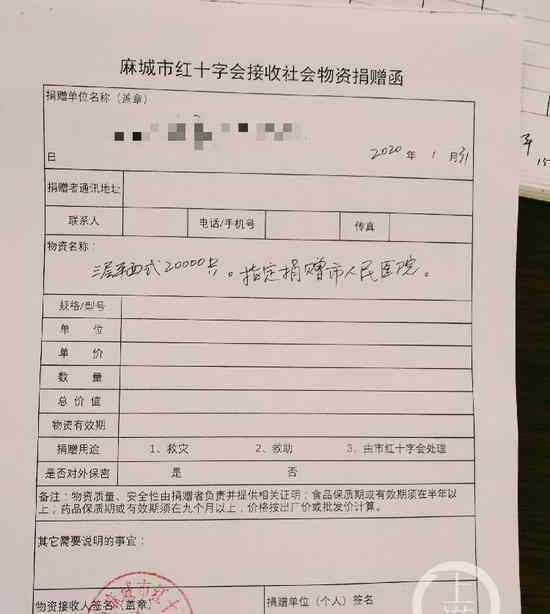 麻城市红十字会接收社会物资捐赠函
捐赠单位名称（盖章）
日 2020 年 1 月 31
捐赠者通讯地址
联系人 电话/手机号 传真
物资名称：
20000只。指定捐赠市人民医院。
规格/型号
单 位
单 价
数 量
总 价 值
物资有效期
捐赠用途 1、救灾 2、救助 3、由市红十字会处理
是否对外保密 是 否
备注：物资质量、安全性由捐赠者负责并提供相关证明；食品保质期或有效期须在半年以
上，药品保质期或有效期须在九个月以上，价格按出厂价或批发价计算。
其它需要说明的事宜：
物资接收人签名（盖章） 捐赠单位（个人）签名
城市红十
上
15